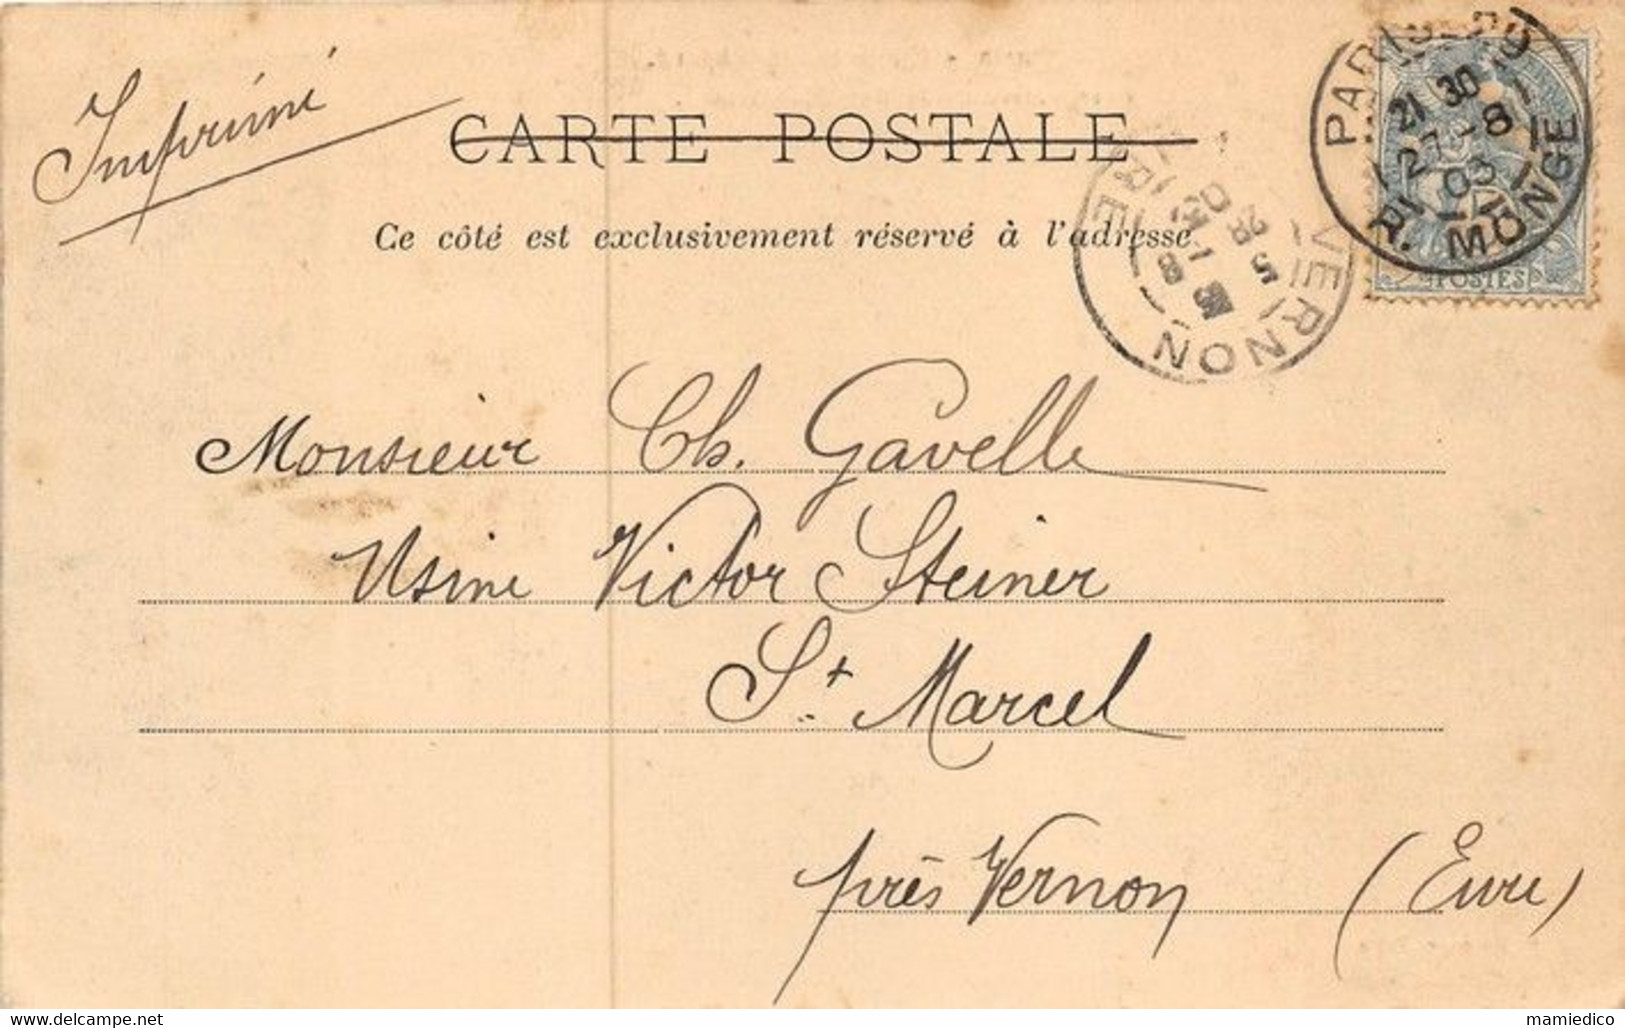 Imprimé
CARTE POSTALE
Ce côté est exclusivement réservé à l'adresse
PARIS
21 30
27 - 8
03
R. MONGE
POSTES
VERNON
EURE
5
28 - 8
03
Monsieur Ch. Gavelle
Usine Victor Steiner
St. Marcel
près Vernon (Eure)
delcampe.net
mamiedico